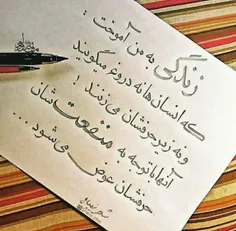 زندگی به من آموخت :
که انسان ها نه دروغ میگویند
و نه زیر حرفشان می زنند !
آنها با توجه به منفعت شان
حرفشان عوض می شود ...